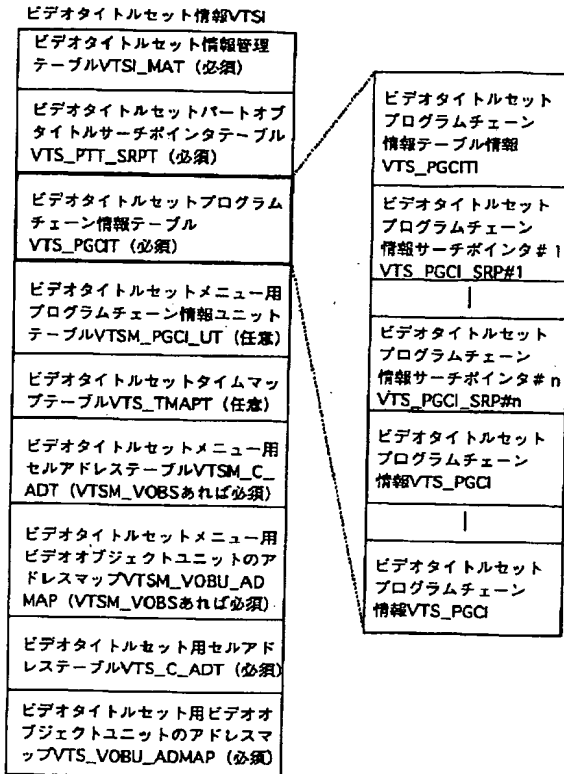 ビデオタイトルセット情報VTSI
ビデオタイトルセット情報管理
テーブルVTSI_MAT（必須）
ビデオタイトルセットパートオブ
タイトルサーチポインタテーブル
VTS_PTT_SRPT（必須）
ビデオタイトルセットプログラム
チェーン情報テーブル
VTS_PGCIT（必須）
ビデオタイトルセットメニュー用
プログラムチェーン情報ユニット
テーブルVTSM_PGCI_UT（任意）
ビデオタイトルセットタイムマッ
プテーブルVTS_TMAPT（任意）
ビデオタイトルセットメニュー用
セルアドレステーブルVTSM_C_
ADT（VTSM_VOBSあれば必須）
ビデオタイトルセットメニュー用
ビデオオブジェクトユニットのア
ドレスマップVTSM_VOBU_AD
MAP（VTSM_VOBSあれば必須）
ビデオタイトルセット用セルアド
レステーブルVTS_C_ADT（必須）
ビデオタイトルセット用ビデオオ
ブジェクトユニットのアドレスマ
ップVTS_VOBU_ADMAP（必須）
ビデオタイトルセット
プログラムチェーン
情報テーブル情報
VTS_PGCITI
ビデオタイトルセット
プログラムチェーン
情報サーチポインタ＃1
VTS_PGCI_SRP#1
ビデオタイトルセット
プログラムチェーン
情報サーチポインタ＃n
VTS_PGCI_SRP#n
ビデオタイトルセット
プログラムチェーン
情報VTS_PGCI
ビデオタイトルセット
プログラムチェーン
情報VTS_PGCI